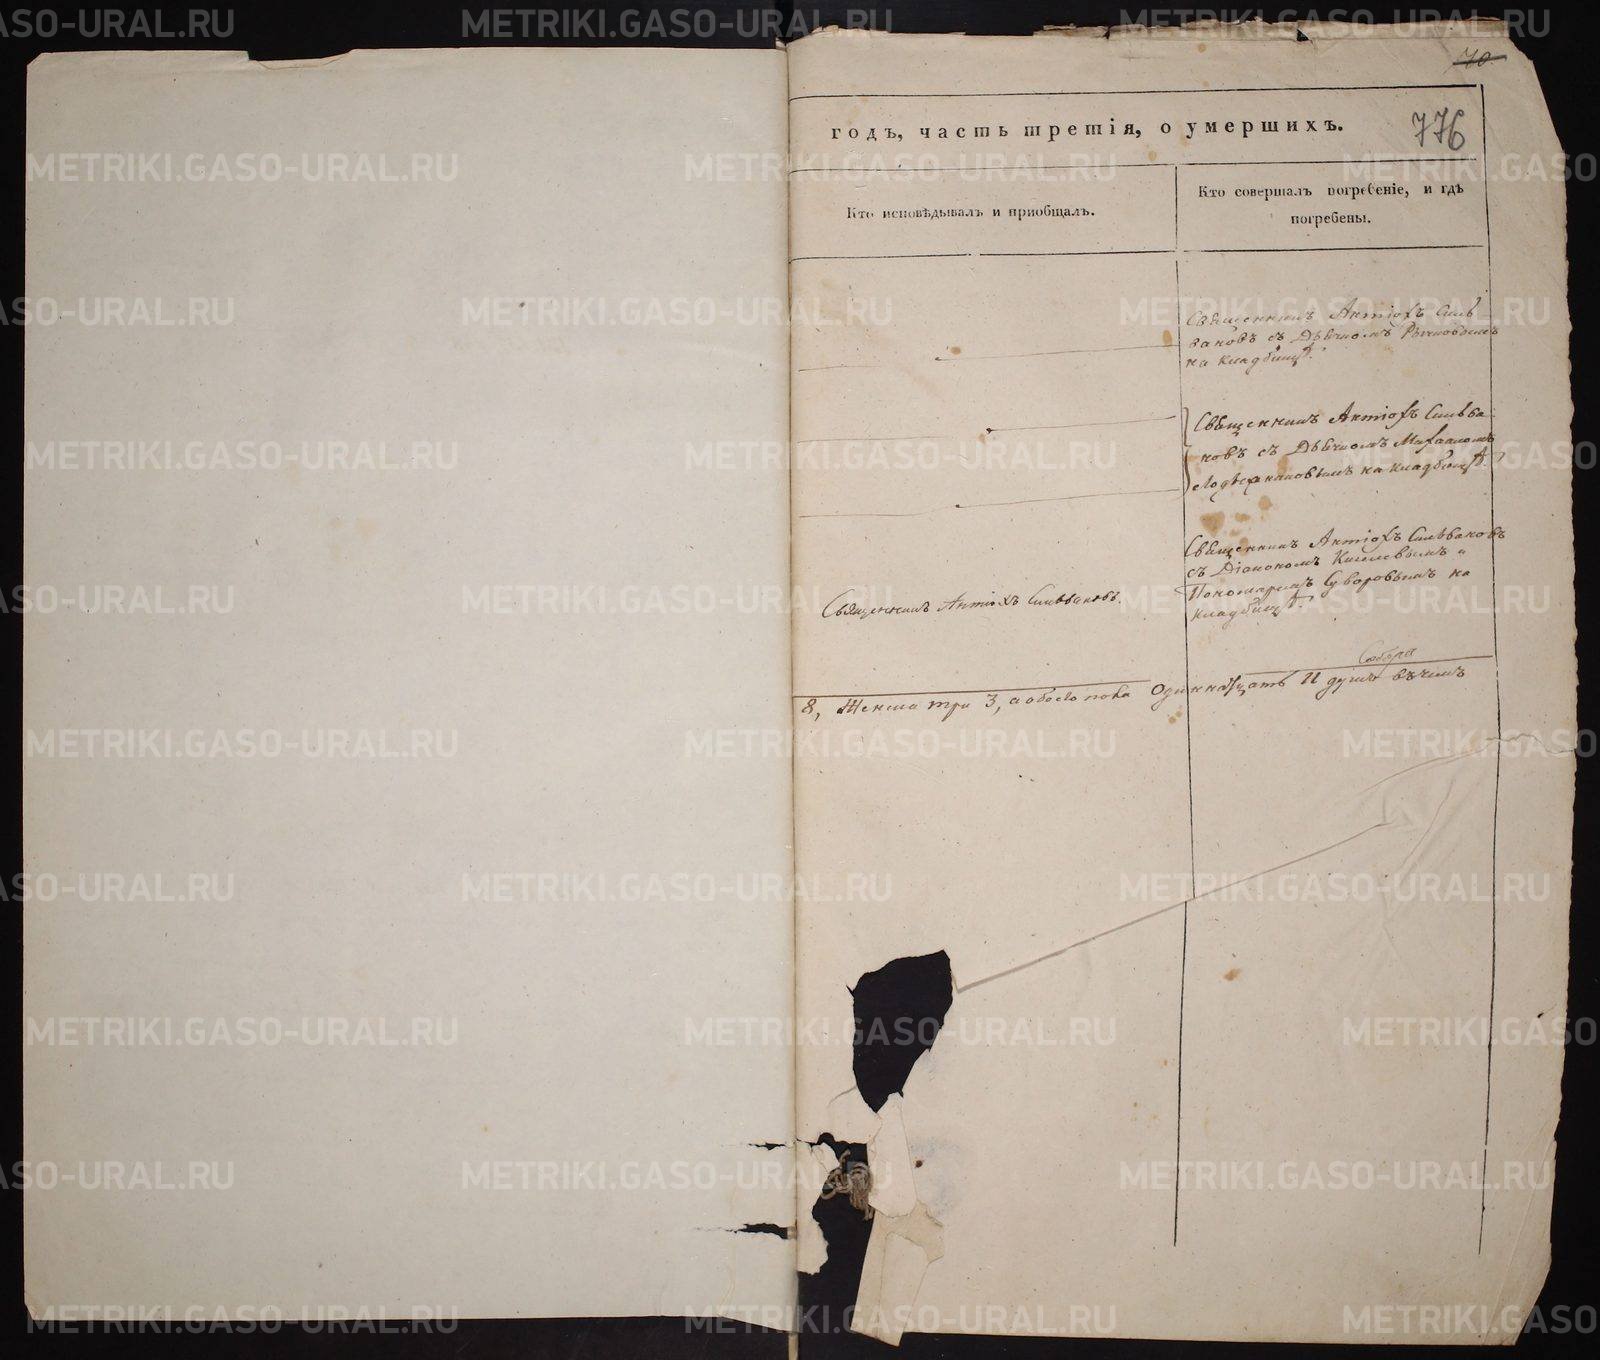 70
776
годъ, часть третія, о умершихъ.
Кто исповѣдывалъ и приобщалъ.
Кто совершалъ погребеніе, и гдѣ
погребены.
Священникъ Антіохъ Силь-
вановъ съ Дьячкомъ
на кладбищѣ.
Священникъ Антіохъ Сильва-
новъ съ Дьячкомъ
на кладбищѣ.
Священникъ Антіохъ Сильвановъ
съ Діакономъ Киселевымъ и
Пономаремъ Суворовымъ на
кладбищѣ.
Священникъ Антіохъ Сильвановъ.
Собора
8, Женска три 3, а обоего пола одиннатцать 11 душъ
METRIKI.GASO-URAL.RU